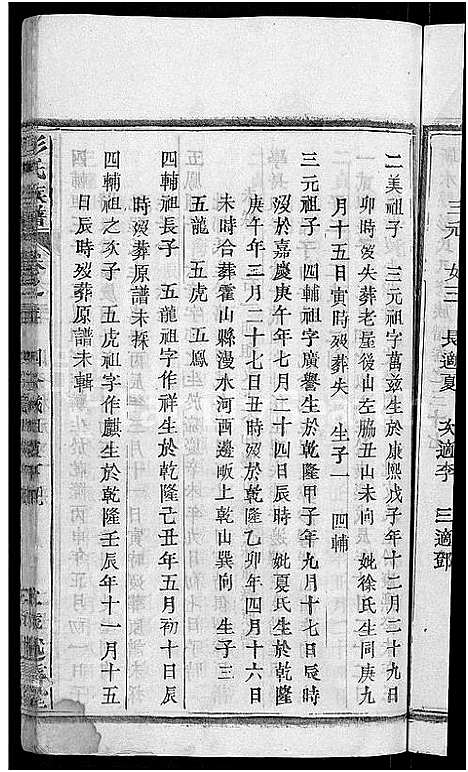 三元 女三 長適夏 次適李 三適鄧
二美祖子 三元祖字萬茲生於康熙戊子年十二月二十九日
卯時歿失葬老屋後山左脇丑山未向 妣徐氏生同庚九
月十五日寅時歿葬失 生子一 四輔
三元祖子 四輔祖字廣譽生於乾隆甲子年九月十七日辰時
歿於嘉慶庚午年七月二十四日辰時 妣夏氏生於乾隆
庚午年三月二十七日丑時歿於乾隆乙卯年四月十六日
未時合葬霍山縣漫水河西邊畈上乾山巽向 生子三
五龍 五虎 五鳳
四輔祖長子 五龍祖字作祥生於乾隆己丑年五月初十日辰
時歿葬原譜未採
四輔祖之次子 五虎祖字作麒生於乾隆壬辰年十一月十五
日辰時歿葬原譜未輯
彭氏族譜 卷之